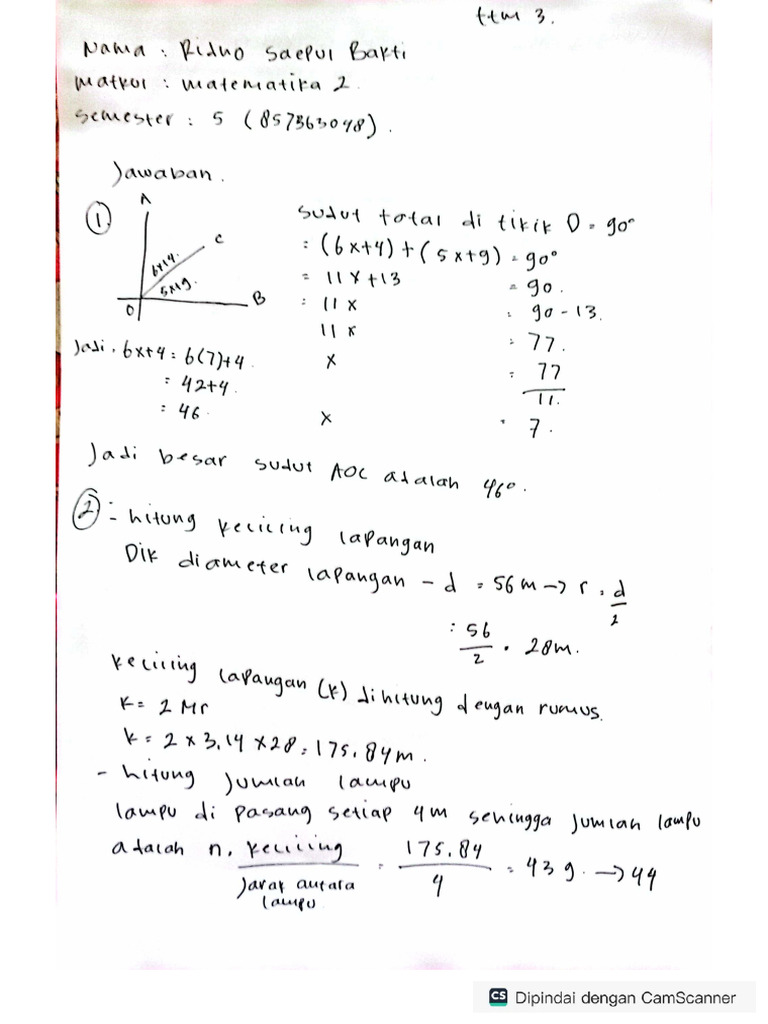 ttm 3.
Nama : Ridho Saepul Bakti
Matkul : Matematika 2.
Semester : 5 (857363048).
Jawaban.
①
A
C
6x+4.
5x+9.
O
B
Sudut total di titik O = 90°
= (6x+4) + (5x+9) = 90°
= 11x+13 = 90.
: 11x = 90-13.
11x = 77.
x = 77/11.
x = 7.
Jadi, 6x+4 = 6(7)+4.
= 42+4.
= 46.
Jadi besar sudut AOC adalah 46°.
② - hitung keliling lapangan
Dik diameter lapangan - d = 56 m -> r = d/2
= 56/2 = 28 m.
Keliling lapangan (k) dihitung dengan rumus.
K = 2 Mr
k = 2 x 3,14 x 28 = 175,84 m.
- hitung jumlah lampu
lampu di pasang setiap 4m sehingga jumlah lampu
adalah n = keliling/jarak antara lampu = 175.84/4 = 43 9. -> 44
CS Dipindai dengan CamScanner